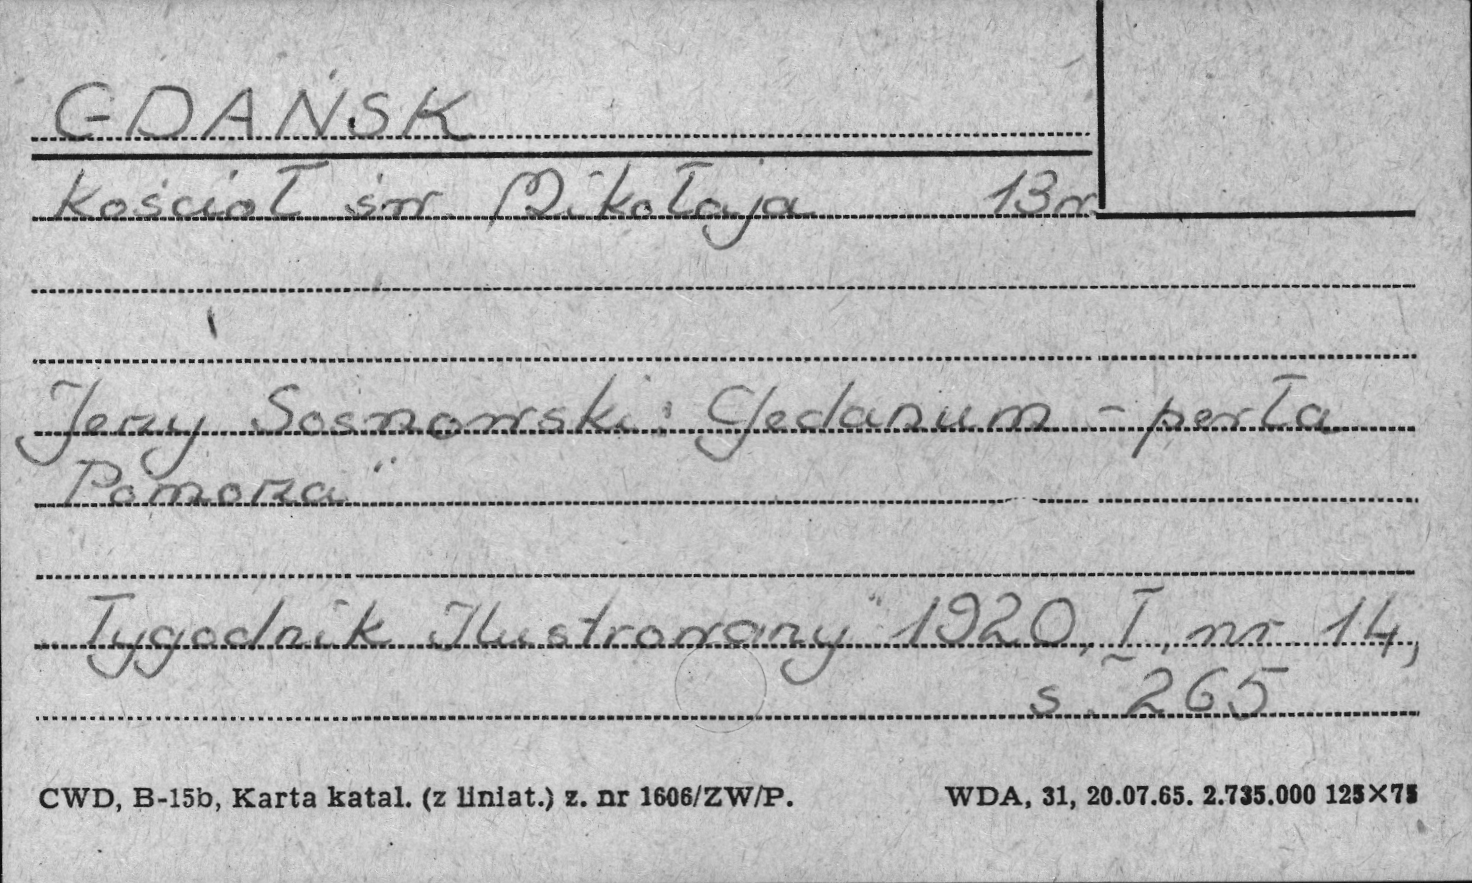 GDAŃSK
Kościół św. Mikołaja 13w
Jerzy Sosnowski: Gedanum - perła
Pomorza"
"Tygodnik Ilustrowany" 1920, I, nr 14,
s. 265
CWD, B-15b, Karta katal. (z liniat.) z. nr 1606/ZW/P. WDA, 31, 20.07.65. 2.735.000 125×75